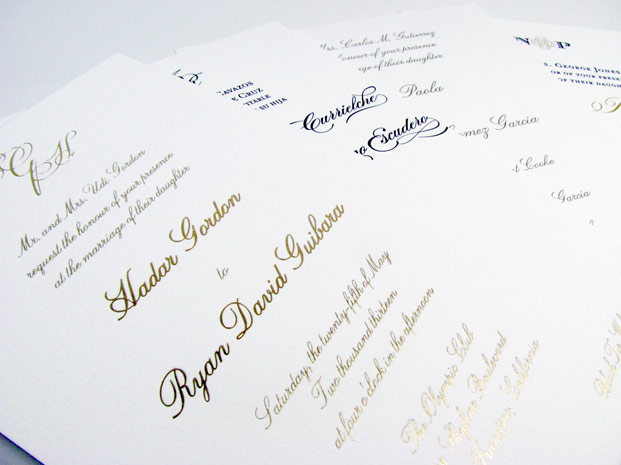 GH
Mr. and Mrs. Udi Gordon
request the honour of your presence
at the marriage of their daughter
Hadar Gordon
to
Ryan David Guibara
Saturday, the twenty fifth of May
Two thousand thirteen
at four o'clock in the afternoon
The Olympic Club
Boulevard
California
Black
AVAZOS
E CRUZ
ITABLE
SU HIJA
rs. Carlos M. Gutierrez
onour of your presence
ge of their daughter
Currielche
Paola
o Escudero
mez Garcia
t Cooke
Garcia
N P
S. GEORGE JONES
OR OF YOUR PRESE
OF THEIR DAUGHTER